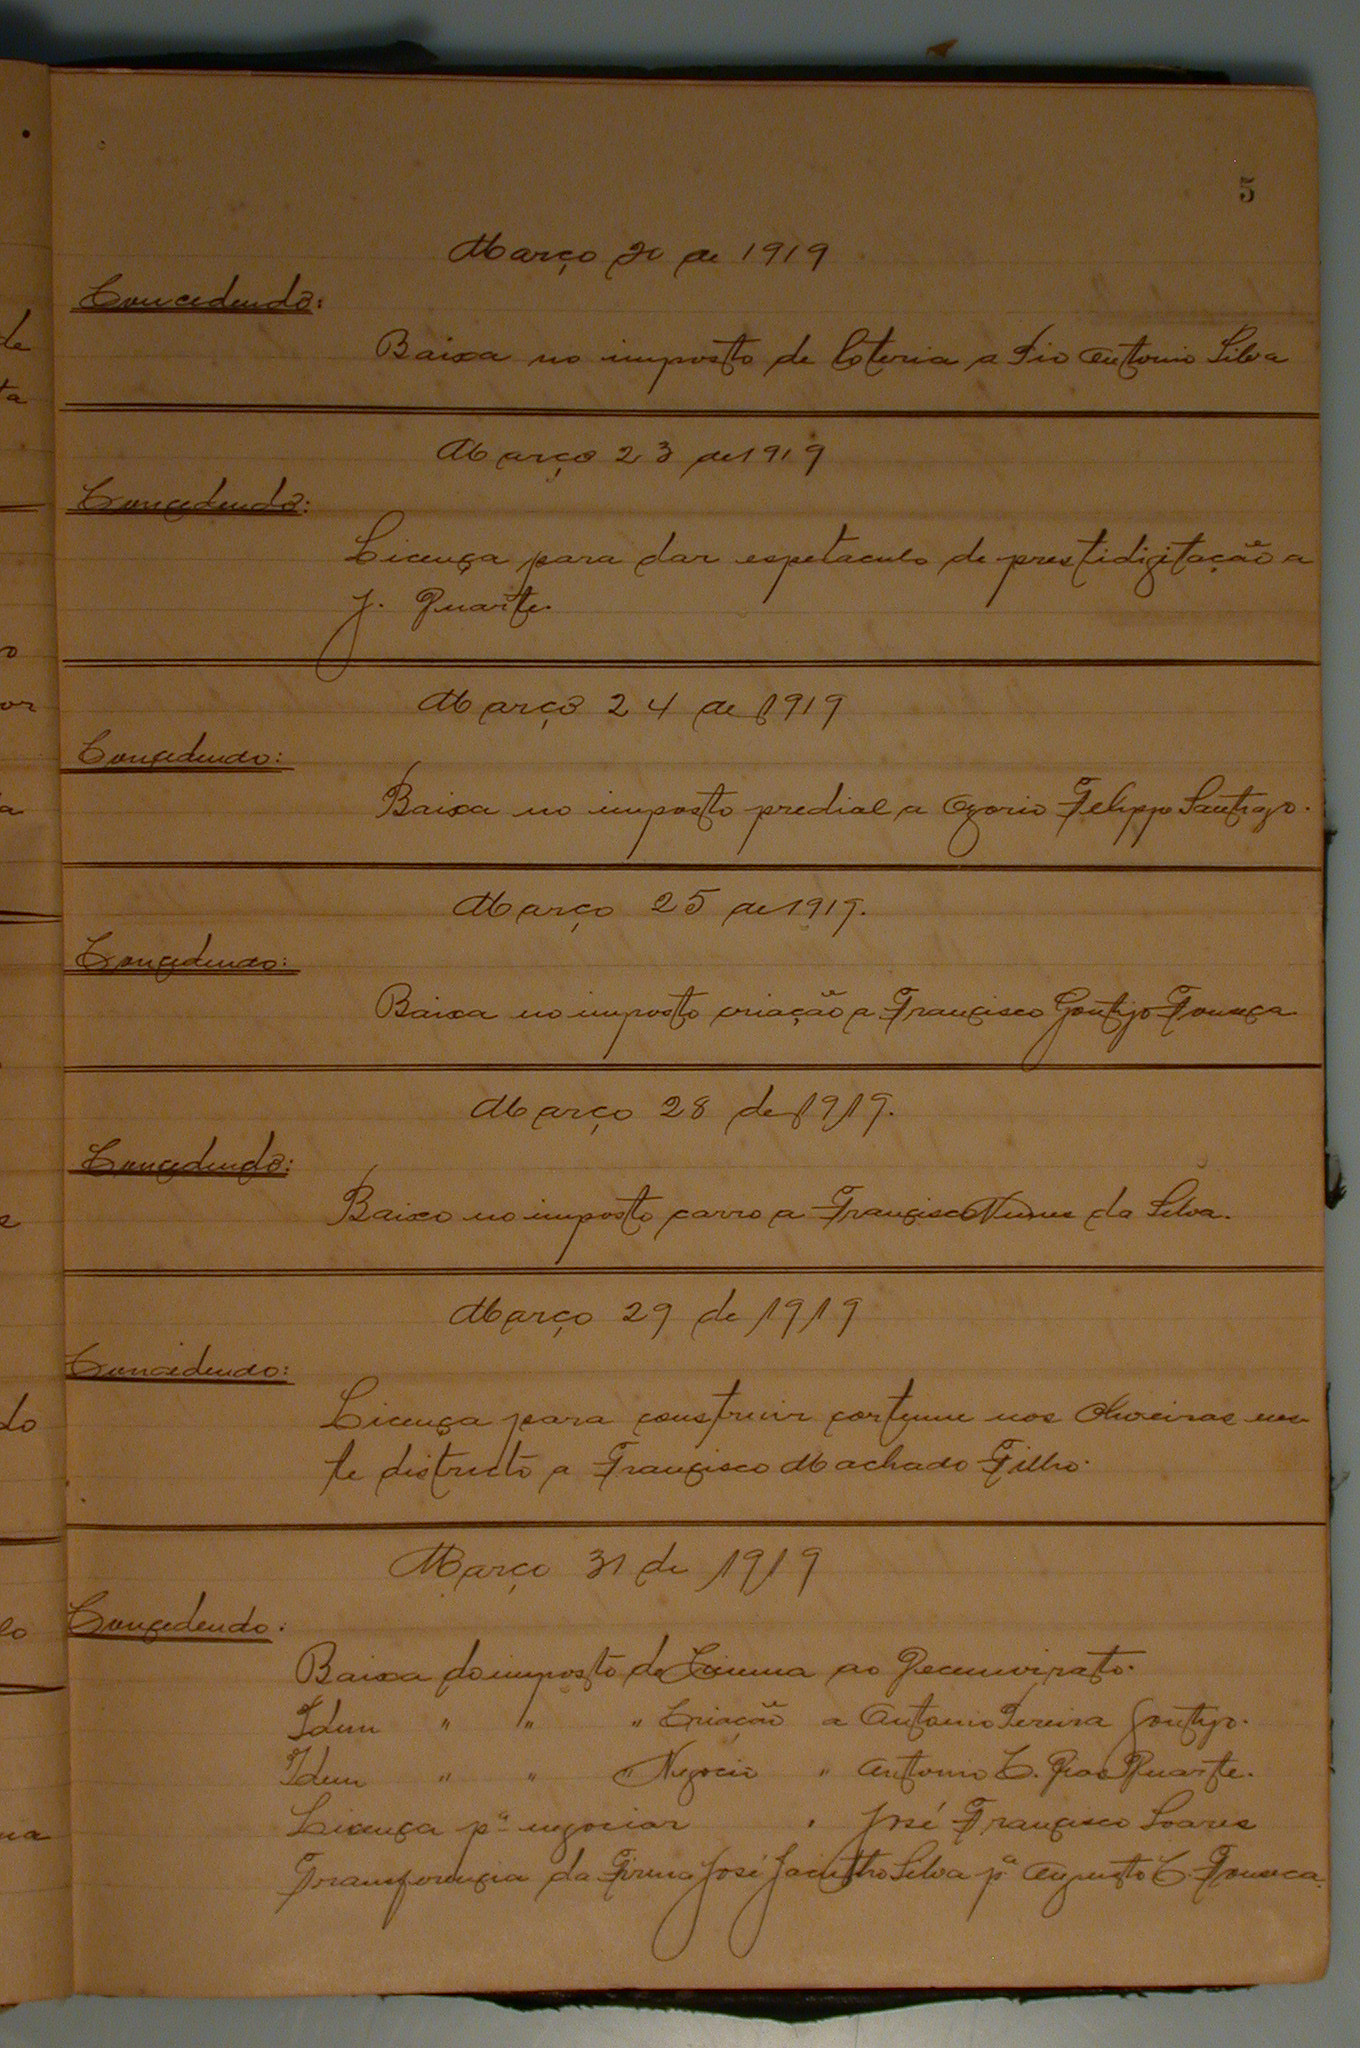 5
Março 20 de 1919
Concedendo:
Baixa no imposto de loteria a Pio Antonio Silva
Março 23 de 1919
Concedendo:
Licença para dar espetaculo de prestidigitação a
J. Duarte.
Março 24 de 1919
Concedendo:
Baixa no imposto predial a Ozorio Felippe Santiago.
Março 25 de 1919.
Concedendo:
Baixa no imposto criação a Francisco Gontijo Fonseca
Março 28 de 1919.
Concedendo:
Baixa no imposto carro a Francisco Nunes da Silva.
Março 29 de 1919
Concedendo:
Licença para construir cortume nos Oliveiras nes-
te districto a Francisco Machado Filho.
Março 31 de 1919
Concedendo:
Baixa do imposto de Cinema ao
Idem " " " Criação a Antonio Pereira Gontijo.
Idem " " " Negocio " Antonio C. Duarte.
Licença pª negociar " José Francisco Soares
Transferencia da Firma José Jacintho Silva pª Augusto C. Fonseca.